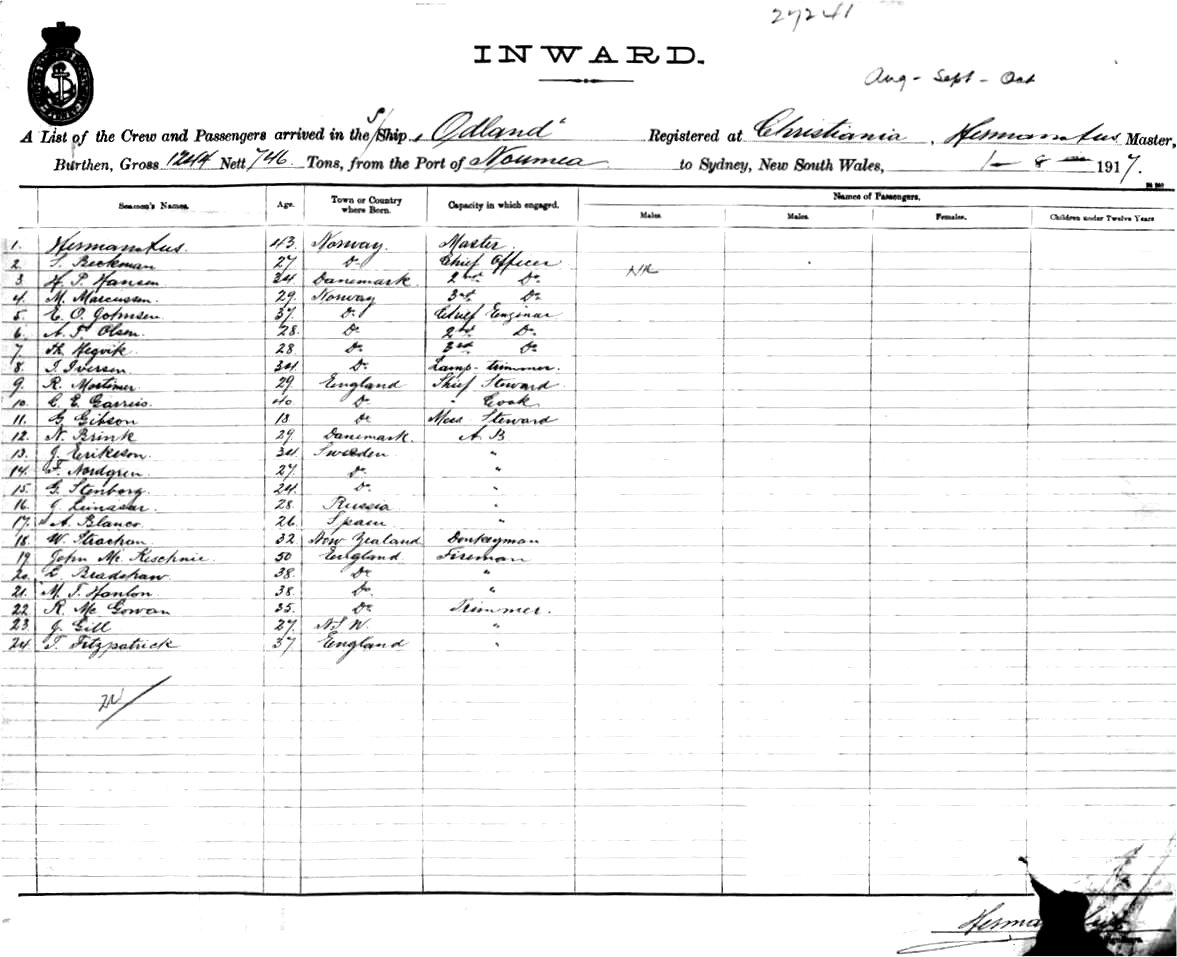 27241
INWARD.
Aug - Sept - Oct
A List of the Crew and Passengers arrived in the S/Ship "Odland" Registered at Christiania, Herman Aus Master,
Burthen, Gross 1244 Nett 746 Tons, from the Port of Noumea to Sydney, New South Wales, 1 - 8 - 1917.
Names of Passengers.
Seamen's Names. Age. Town or Country where Born. Capacity in which engaged. Males. Males. Females. Children under Twelve Years
1. Herman Aus. 43. Norway. Master.
2. Beckman 27 Do Chief Officer
3. H. P. Hansen 34 Danemark. 2nd Do Nil
4. M. Marcussen. 29. Norway 3rd Do
5. E. O. Johnsen. 37. Do Chief Enginar
6. A. F. Olsen. 28. Do 2nd Do
7. Th. Hegvik. 28. Do 3rd Do
8. Iversen 34. Do Lamp-trimmer.
9. R. Mortimer. 29 England Shief Steward
10. C. E. Garris. 40 Do " Cook
11. G. Gibson 18 Do Mess Steward
12. N. Brink 29. Danemark. A.B
13. J. Erikson. 34. Sweden "
14. F. Nordgren. 27. Do "
15. G. Stenborg. 24. Do "
16. J. 28. Russia "
17. A. Blanco. 26. Spain "
18. W. Strachan. 32. New Zealand Donkeyman
19. John Mc Kechnie. 50 England Fireman
20. Bradshaw. 38. Do "
21. M. T. Hanlon. 38. Do "
22. R. Mc Gowan 35. Do Trimmer.
23. J. Gill 27. N.S.W. "
24. T. Fitzpatrick 37 England "
24/